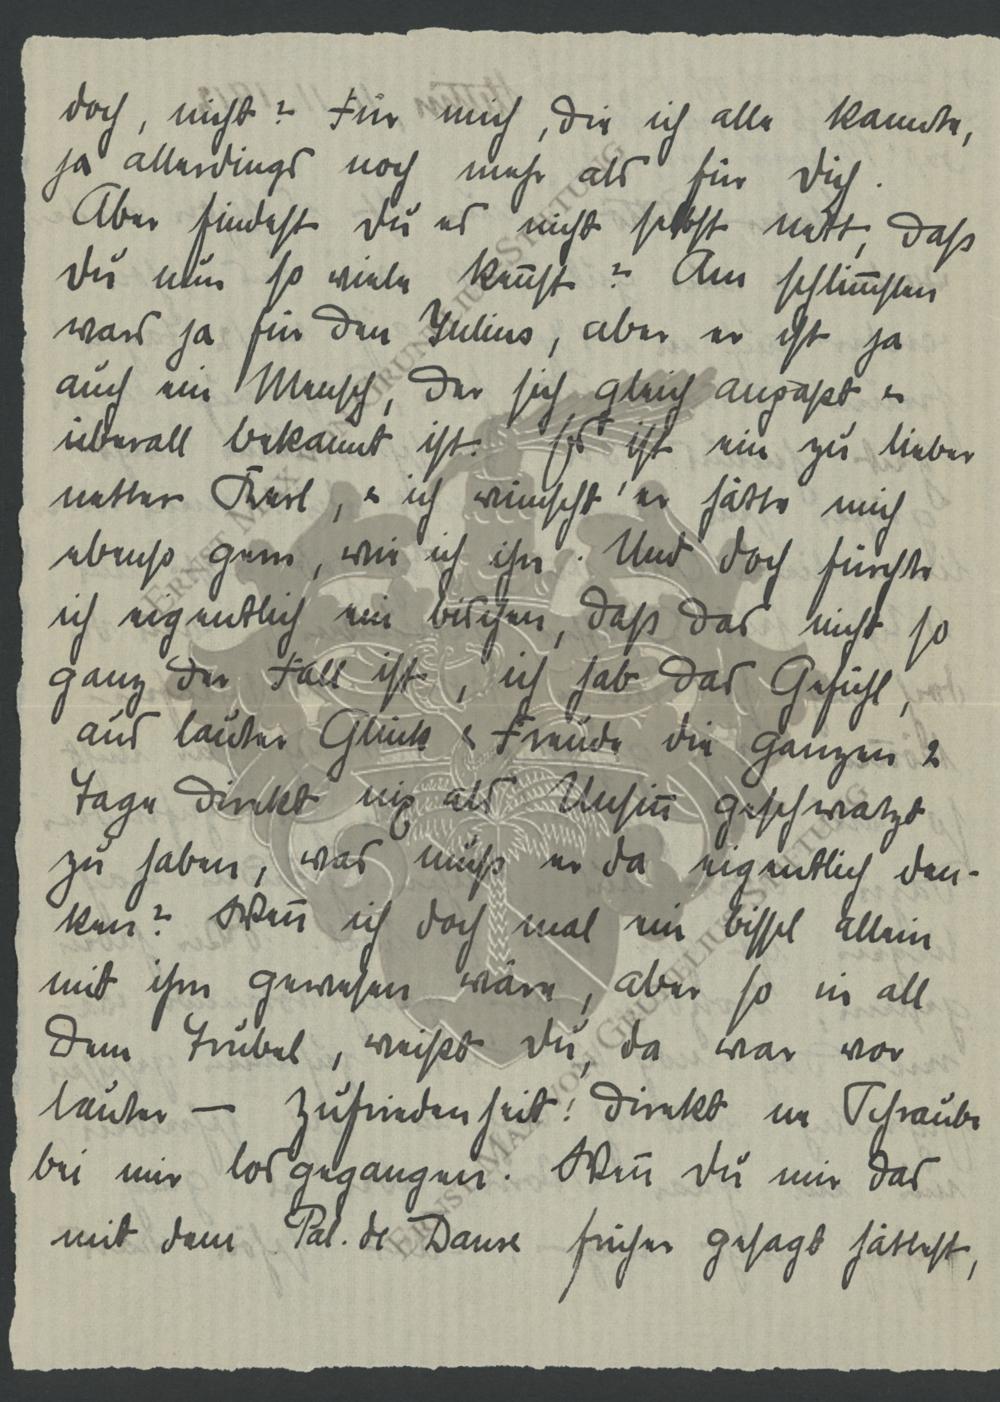 doch, nicht? Für mich, die ich alle kannte,
ja allerdings noch mehr als für Dich.
Aber findest Du es nicht selbst nett, daß
Du nun so viele keñst? Am schlim̄sten
wars ja für den Julius, aber er ist ja
auch ein Mensch, der sich gleich anpaßt &
überall bekannt ist. Es ist ein zu lieber
netter Kerl, & ich wünscht' er hätte mich
ebenso gern, wie ich ihn. Und doch fürchte
ich eigentlich ein bischen, daß das nicht so
ganz der Fall ist, ich hab das Gefühl,
aus lauter Glück & Freude die ganzen 2
Tage direkt nix als Unsiñ geschwatzt
zu haben, was muß er da eigentlich den-
ken? Weñ ich doch mal ein bissel allein
mit ihm gewesen wäre, aber so in all
dem Trubel, weißt Du, da war vor
lauter — Zufriedenheit! direkt ne Schraube
bei mir losgegangen. Weñ Du mir das
mit dem Pal. de Danse früher gesagt hättest,
ERNST MAX VON GRUNELIUS-STIFTUNG
ERNST MAX VON GRUNELIUS-STIFTUNG